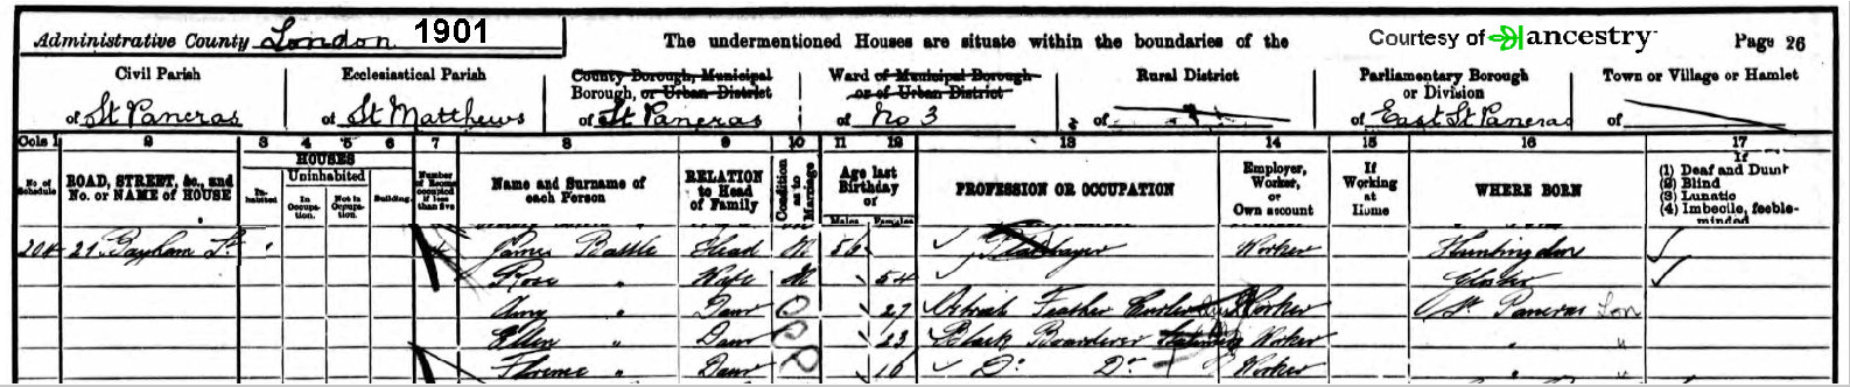 Administrative County London 1901 The undermentioned Houses are situate within the boundaries of the Courtesy of ancestry Page 26
Civil Parish Ecclesiastical Parish County Borough, Municipal Ward of Municipal Borough Rural District Parliamentary Borough Town or Village or Hamlet
Borough, or Urban District or of Urban District or Division
of St Pancras of St Matthews of St Pancras of No 3 of of East St Pancras of
Cols 1 2 3 4 5 6 7 8 9 10 11 12 13 14 15 16 17
No of Schedule ROAD, STREET, &c., and No. or NAME of HOUSE HOUSES Inhabited Uninhabited In Occupation. Not in Occupation. Building. Number of Rooms occupied if less than five Name and Surname of each Person RELATION to Head of Family Condition as to Marriage Age last Birthday of Males Females PROFESSION OR OCCUPATION Employer, Worker, or Own account If Working at Home WHERE BORN If (1) Deaf and Dumb (2) Blind (3) Lunatic (4) Imbecile, feeble-minded
204 21 St. 4 James Battle Head M 56 Worker Huntingdon
Rose " Wife M 54 Gloster
Amy " Daur 27 Ostrich Feather Curler Worker St Pancras Lon
Ellen " Daur 23 Black Boarderer Stationery Worker " "
Florence " Daur 16 Do Do Worker " "